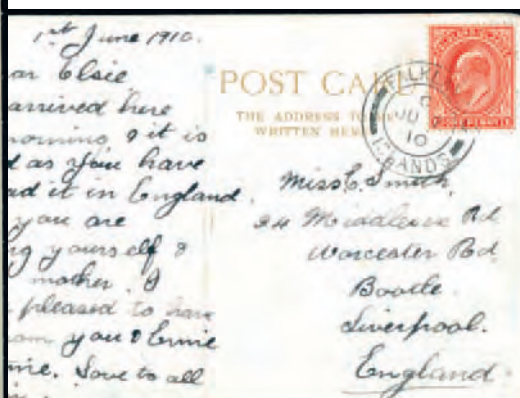 1st June 1910.
ar Elsie
arrived here
orning & it is
d as you have
ad it in England.
you are
ng yourself &
mother. I
pleased to have
om you & Ernie
me. Love to all
POST CARD
THE ADDRESS TO BE
WRITTEN HERE
FALKLAND
JU
10
ISLANDS
Miss E. Smith,
24 Middlesex Rd
Worcester Rd
Bootle.
Liverpool.
England.